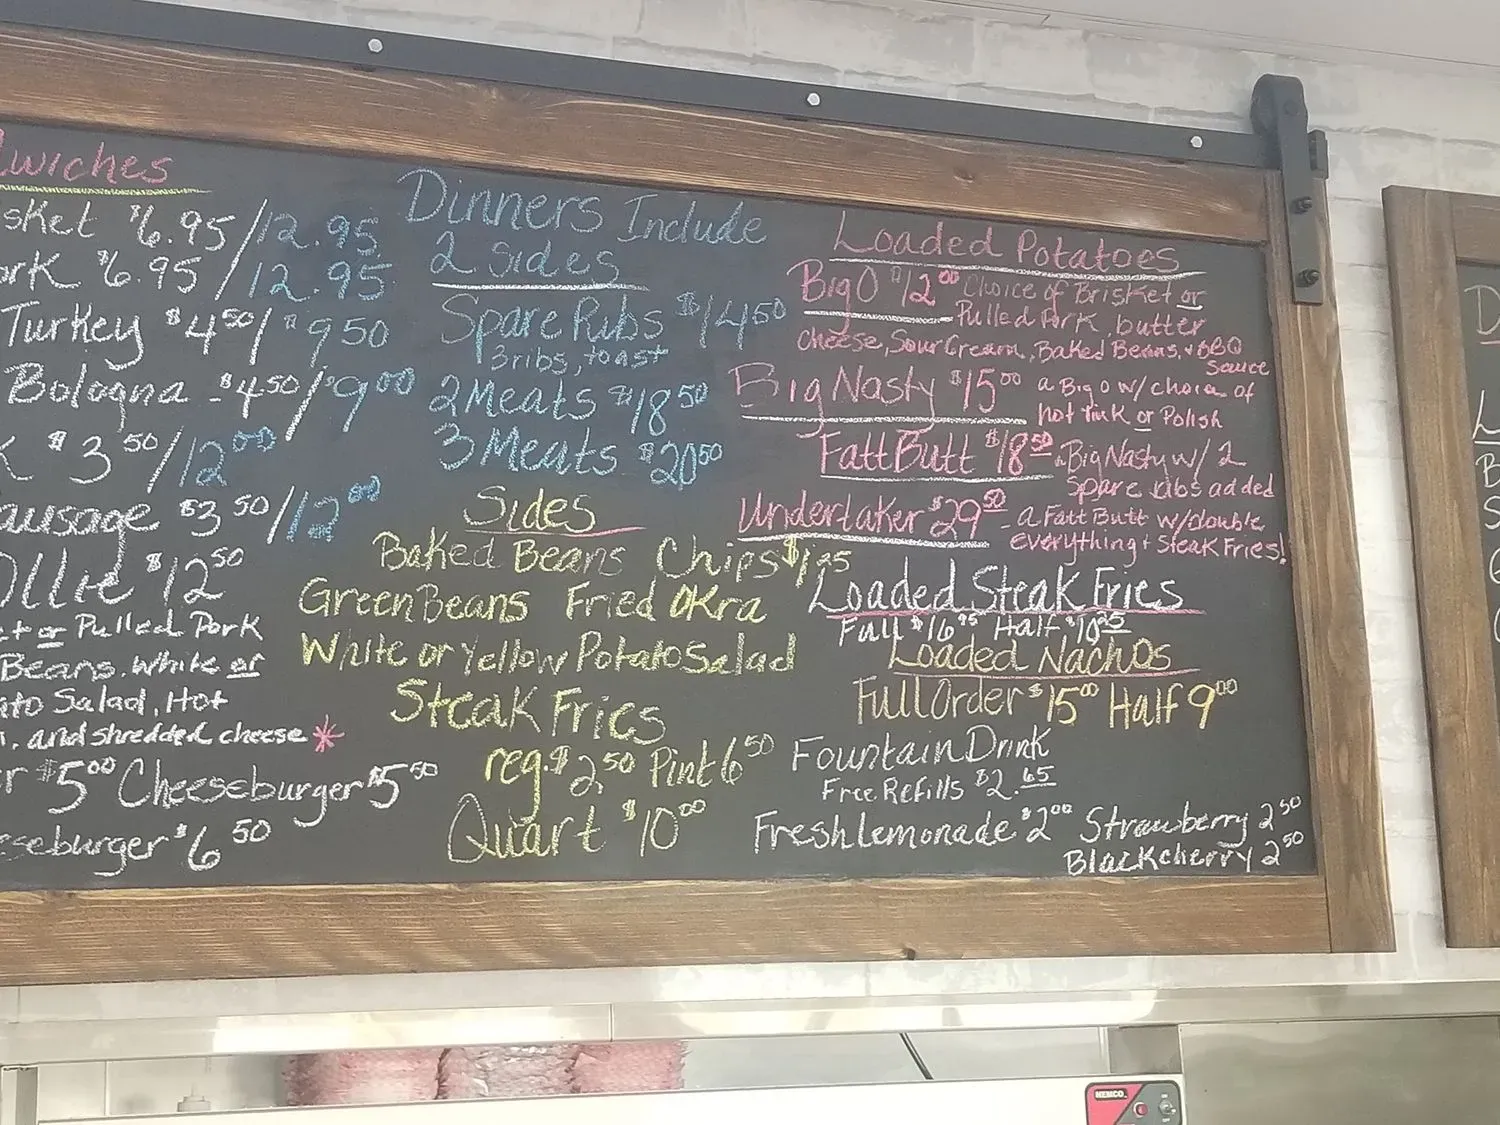 wiches
sket $6.95/12.95
ork $6.95/12.95
Turkey $4.50/$9.50
Bologna - $4.50/$9.00
K $3.50/12.00
ausage $3.50/12.00
ollie $12.50
et or Pulled Pork
Beans, White or
ato Salad, Hot
, and shredded cheese *
er $5.00 Cheeseburger $5.50
eseburger $6.50
Dinners Include
2 Sides
Spare Ribs $14.50
3 ribs, toast
2 Meats $18.50
3 Meats $20.50
Sides
Baked Beans Chips $1.25
Green Beans Fried Okra
White or Yellow Potato Salad
Steak Fries
reg. $2.50 Pint 6.50
Quart $10.00
Loaded Potatoes
Big O $12.00 Choice of Brisket or
Pulled Pork, butter
Cheese, Sour Cream, Baked Beans, + BBQ
Sauce
Big Nasty $15.00 a Big O w/ choice of
hot link or Polish
Fatt Butt $18.50 - a Big Nasty w/ 2
spare ribs added
Undertaker $29.50 - a Fatt Butt w/ double
everything + Steak Fries!
Loaded Steak Fries
Full $16.95 Half $10.25
Loaded Nachos
Full Order $15.00 Half 9.00
Fountain Drink
Free Refills $2.65
Fresh Lemonade $2.00 Strawberry 2.50
Blackcherry 2.50
HEMCO